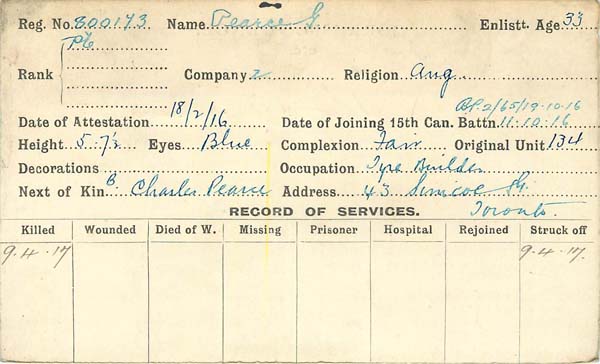 Reg. No. 800173 Name Pearce G. Enlistt. Age 33
Pte
Rank Company 2 Religion Ang.
BP. 2/65/19-10-16
Date of Attestation 18/2/16 Date of Joining 15th Can. Battn. 11-10-16
Height 5-7½ Eyes Blue Complexion Fair Original Unit 134
Decorations Occupation Tyre Builder
Next of Kin B. Charles Pearce Address 43 Simcoe St.
Toronto.
RECORD OF SERVICES.
Killed Wounded Died of W. Missing Prisoner Hospital Rejoined Struck off
9.4.17 9.4.17.